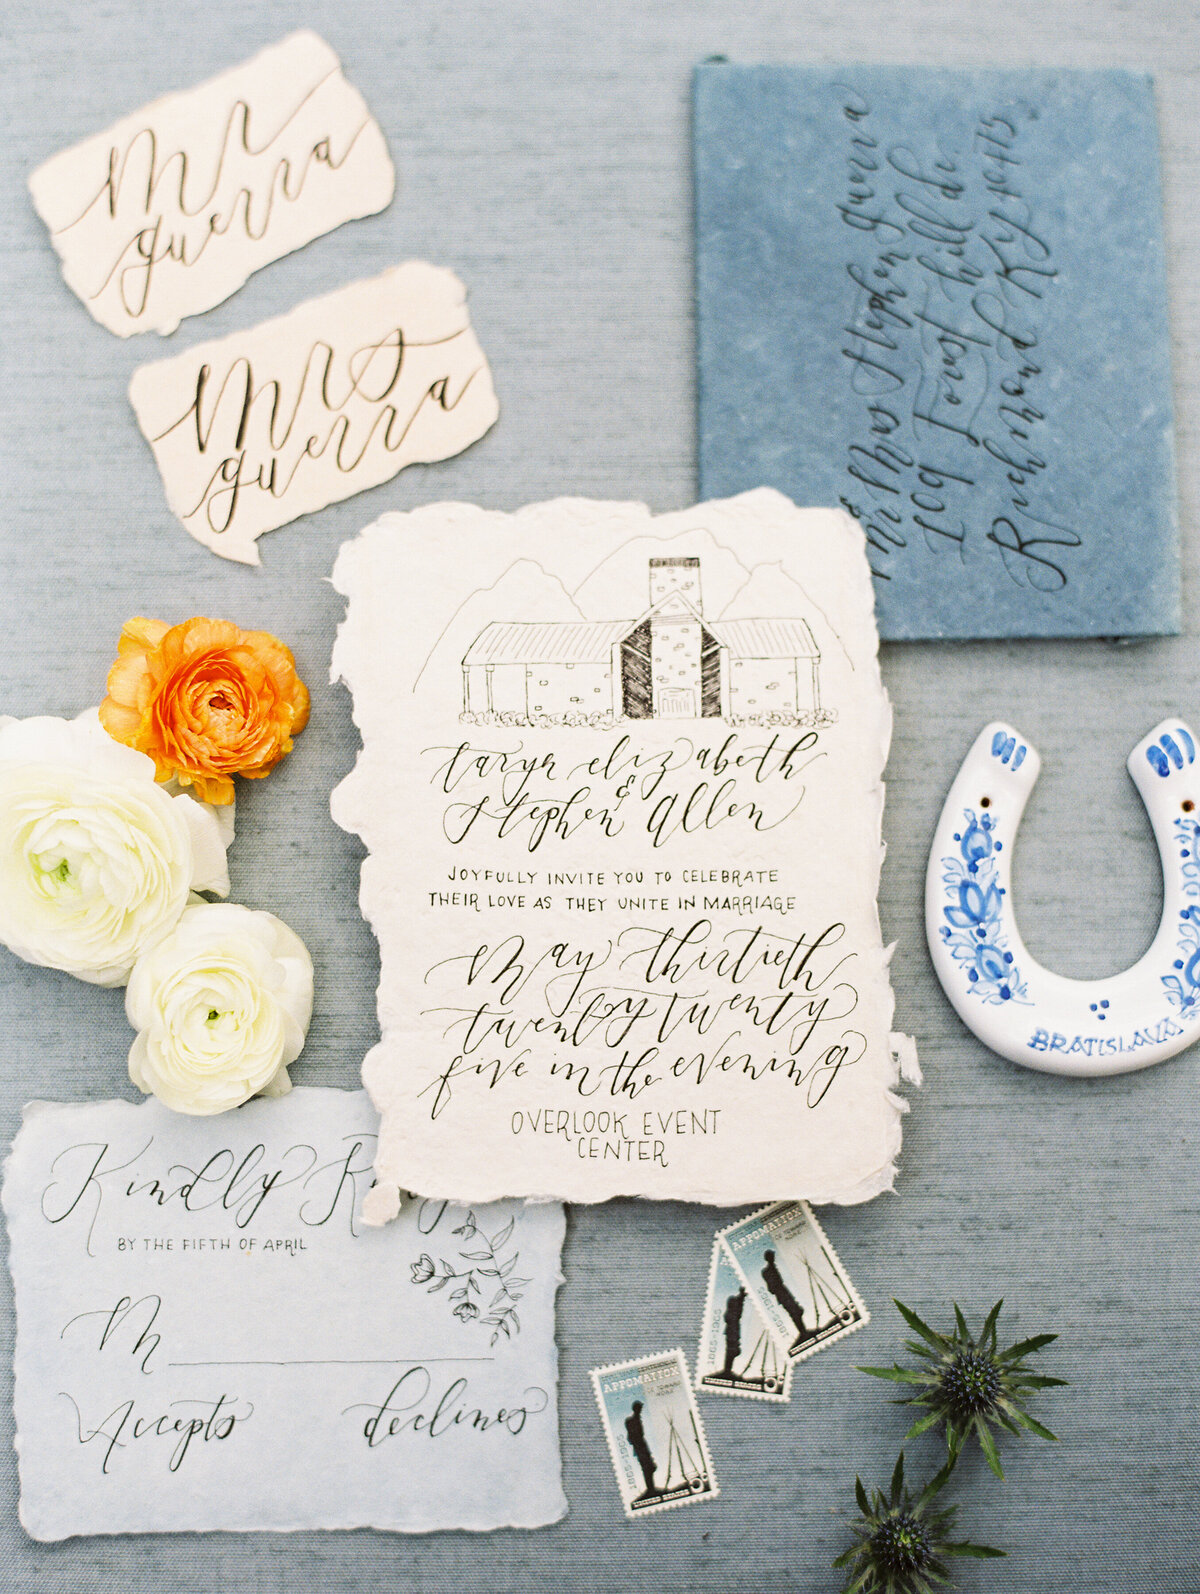 Mr
guerra
Mrs
guerra
Mr & Mrs Stephen guerra
109 Forest hill dr.
Richmond, KY 40475
taryn elizabeth
&
Stephen Allen
JOYFULLY INVITE YOU TO CELEBRATE
THEIR LOVE AS THEY UNITE IN MARRIAGE
May thirtieth
twenty twenty
five in the evening
OVERLOOK EVENT
CENTER
BRATISLAVA
Kindly
BY THE FIFTH OF APRIL
M
Accepts declines
APPOMATTOX
1865-1965
UNITED STATES
APPOMATTOX
1865-1965
UNITED STATES
1865-1965
UNITED STATES